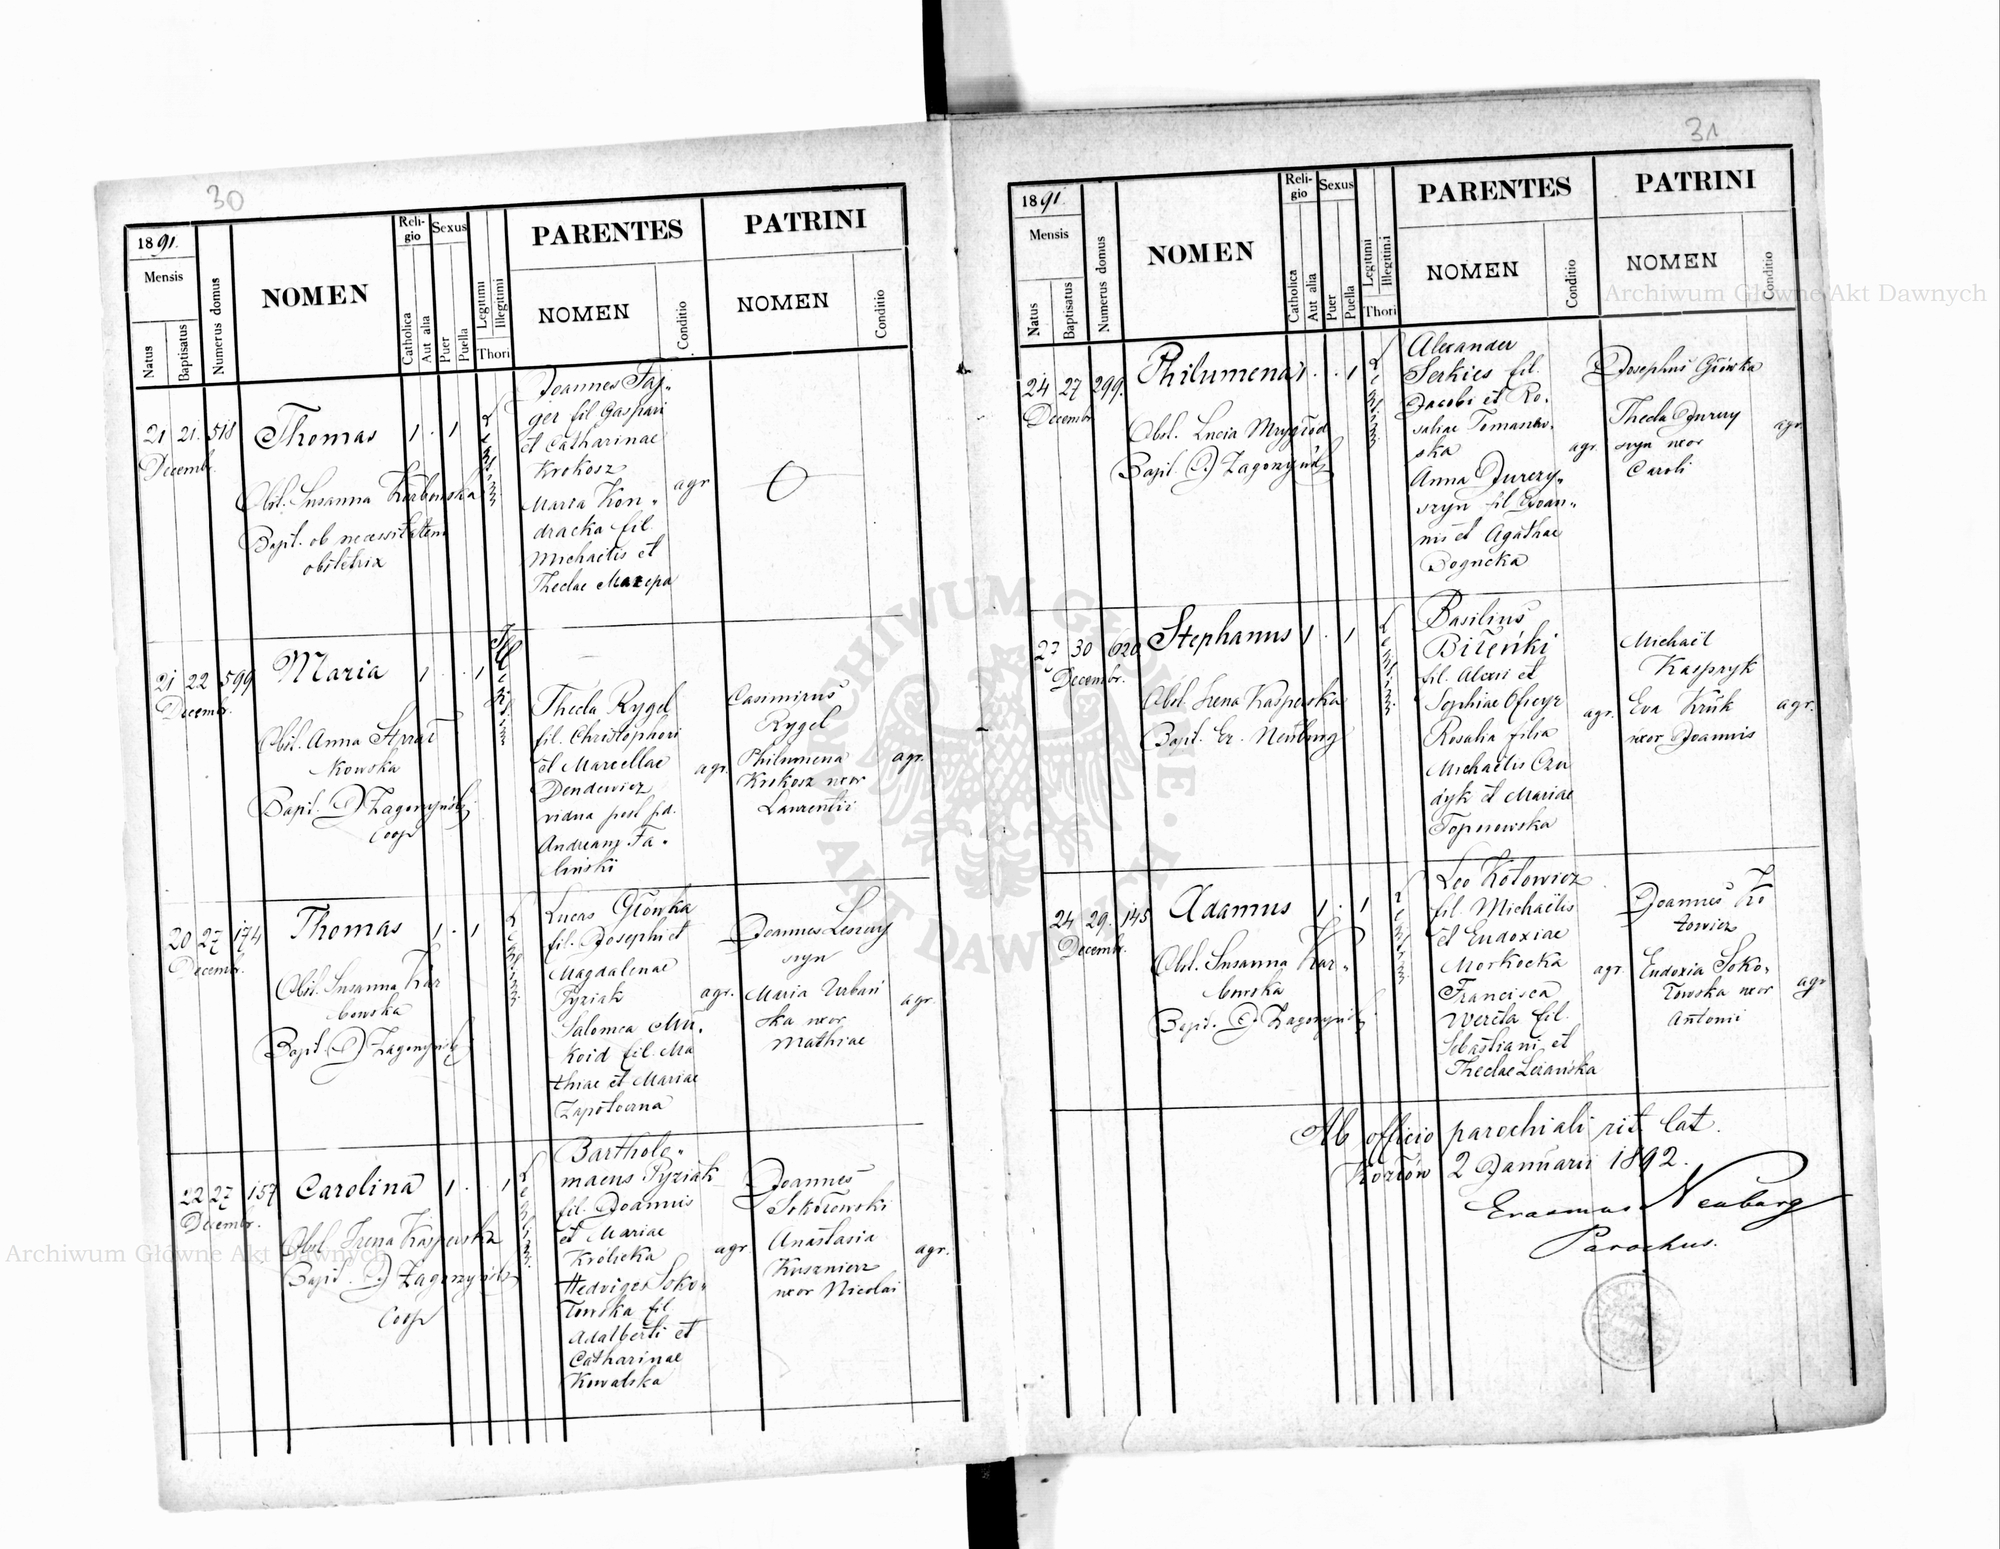 30
1891.
Mensis
Natus
Baptisatus
Numerus domus
NOMEN
Religio
Catholica
Aut alia
Sexus
Puer
Puella
Legitimi
Illegitimi
Thori
PARENTES
NOMEN
Conditio
PATRINI
NOMEN
Conditio
21 21. 518
Decembr.
Thomas
1 . 1
Obst. Susanna Karbowska
Bapt. ob necessitatem
obstetrix
Joannes Faj-
ger fil Gaspari
et Catharinae
Krokosz
Maria Kon-
dracka fil.
Michaelis et
Theclae Mazepa
agr
21 22 599
Decembr.
Maria
1 . . 1
Obst. Anna Szrat
kowska
Bapt. D Zagorzyński
Coop
Thecla Rygel
fil. Christophori
et Marcellae
Dendewicz
vidua post pd.
Andream Fa-
liński
agr.
Casimirus
Rygel
Philumena
Krokosz uxor
Laurentii
agr.
20 27 174
Decembr.
Thomas
1 . 1
Obst. Susanna Kar
bowska
Bapt. D Zagorzyński
Lucas Główka
fil. Josephi et
Magdalenae
Pyziak
Salomea Mu-
koid fil. Ma
thiae et Mariae
Zapotoczna
agr.
Joannes Leszczy
szyn
Maria Urbań
ska uxor
Mathiae
agr.
22 27 157
Decembr.
Carolina
1 . . 1
Obst Irena Kasperska
Bapt. D Zagorzyński
Coop
Bartholo-
maeus Pyziak
fil. Joannis
et Mariae
Królicka
Hedviges Soko-
łowska fil
Adalberti et
Catharinae
Kowalska
agr
Joannes
Sokołowski
Anastasia
Kusznierz
uxor Nicolai
agr.
31
1891.
Mensis
Natus
Baptisatus
Numerus domus
NOMEN
Religio
Catholica
Aut alia
Sexus
Puer
Puella
Legitimi
Illegitimi
Thori
PARENTES
NOMEN
Conditio
PATRINI
NOMEN
Conditio
24 27 299.
Decembr
Philumena
1 . . 1
Obst. Lucia Mrygłod
Bapt. D Zagorzyński
Alexander
Serkies fil.
Jacobi et Ro-
saliae Tomaszew-
ska
Anna Jurczy-
szyn fil Joan-
nis et Agathae
Bognicka
agr.
Josephus Główka
Thecla Jurczy
szyn uxor
Caroli
agr.
27 30 620
Decembr.
Stephanus
1 . 1
Obst. Irena Kasperska
Bapt. Er. Neuburg
Basilius
Bileńki
fil. Alexii et
Sophiae
Rosalia filia
Michaelis Czu
dyk et Mariae
Toporowska
agr.
Michaël
Kaspryk
Eva Kruk
uxor Joannis
agr.
24 29. 145
Decembr.
Adamus
1 . 1
Obst. Susanna Kar-
bowska
Bapt. D. Zagorzyński
Leo Kotowicz
fil. Michaëlis
et Eudoxiae
Morkocka
Francisca
Wereta fil.
Sebastiani et
Theclae Leżańska
agr.
Joannes Ko
towicz
Eudoxia Soko-
łowska uxor
Antonii
agr
Ab officio parochiali rit. lat.
Kozłów 2 Januarii 1892.
Erasmus Neuburg
Parochus.
Archiwum Główne Akt Dawnych
Archiwum Główne Akt Dawnych
ARCHIWUM GŁÓWNE AKT DAWNYCH